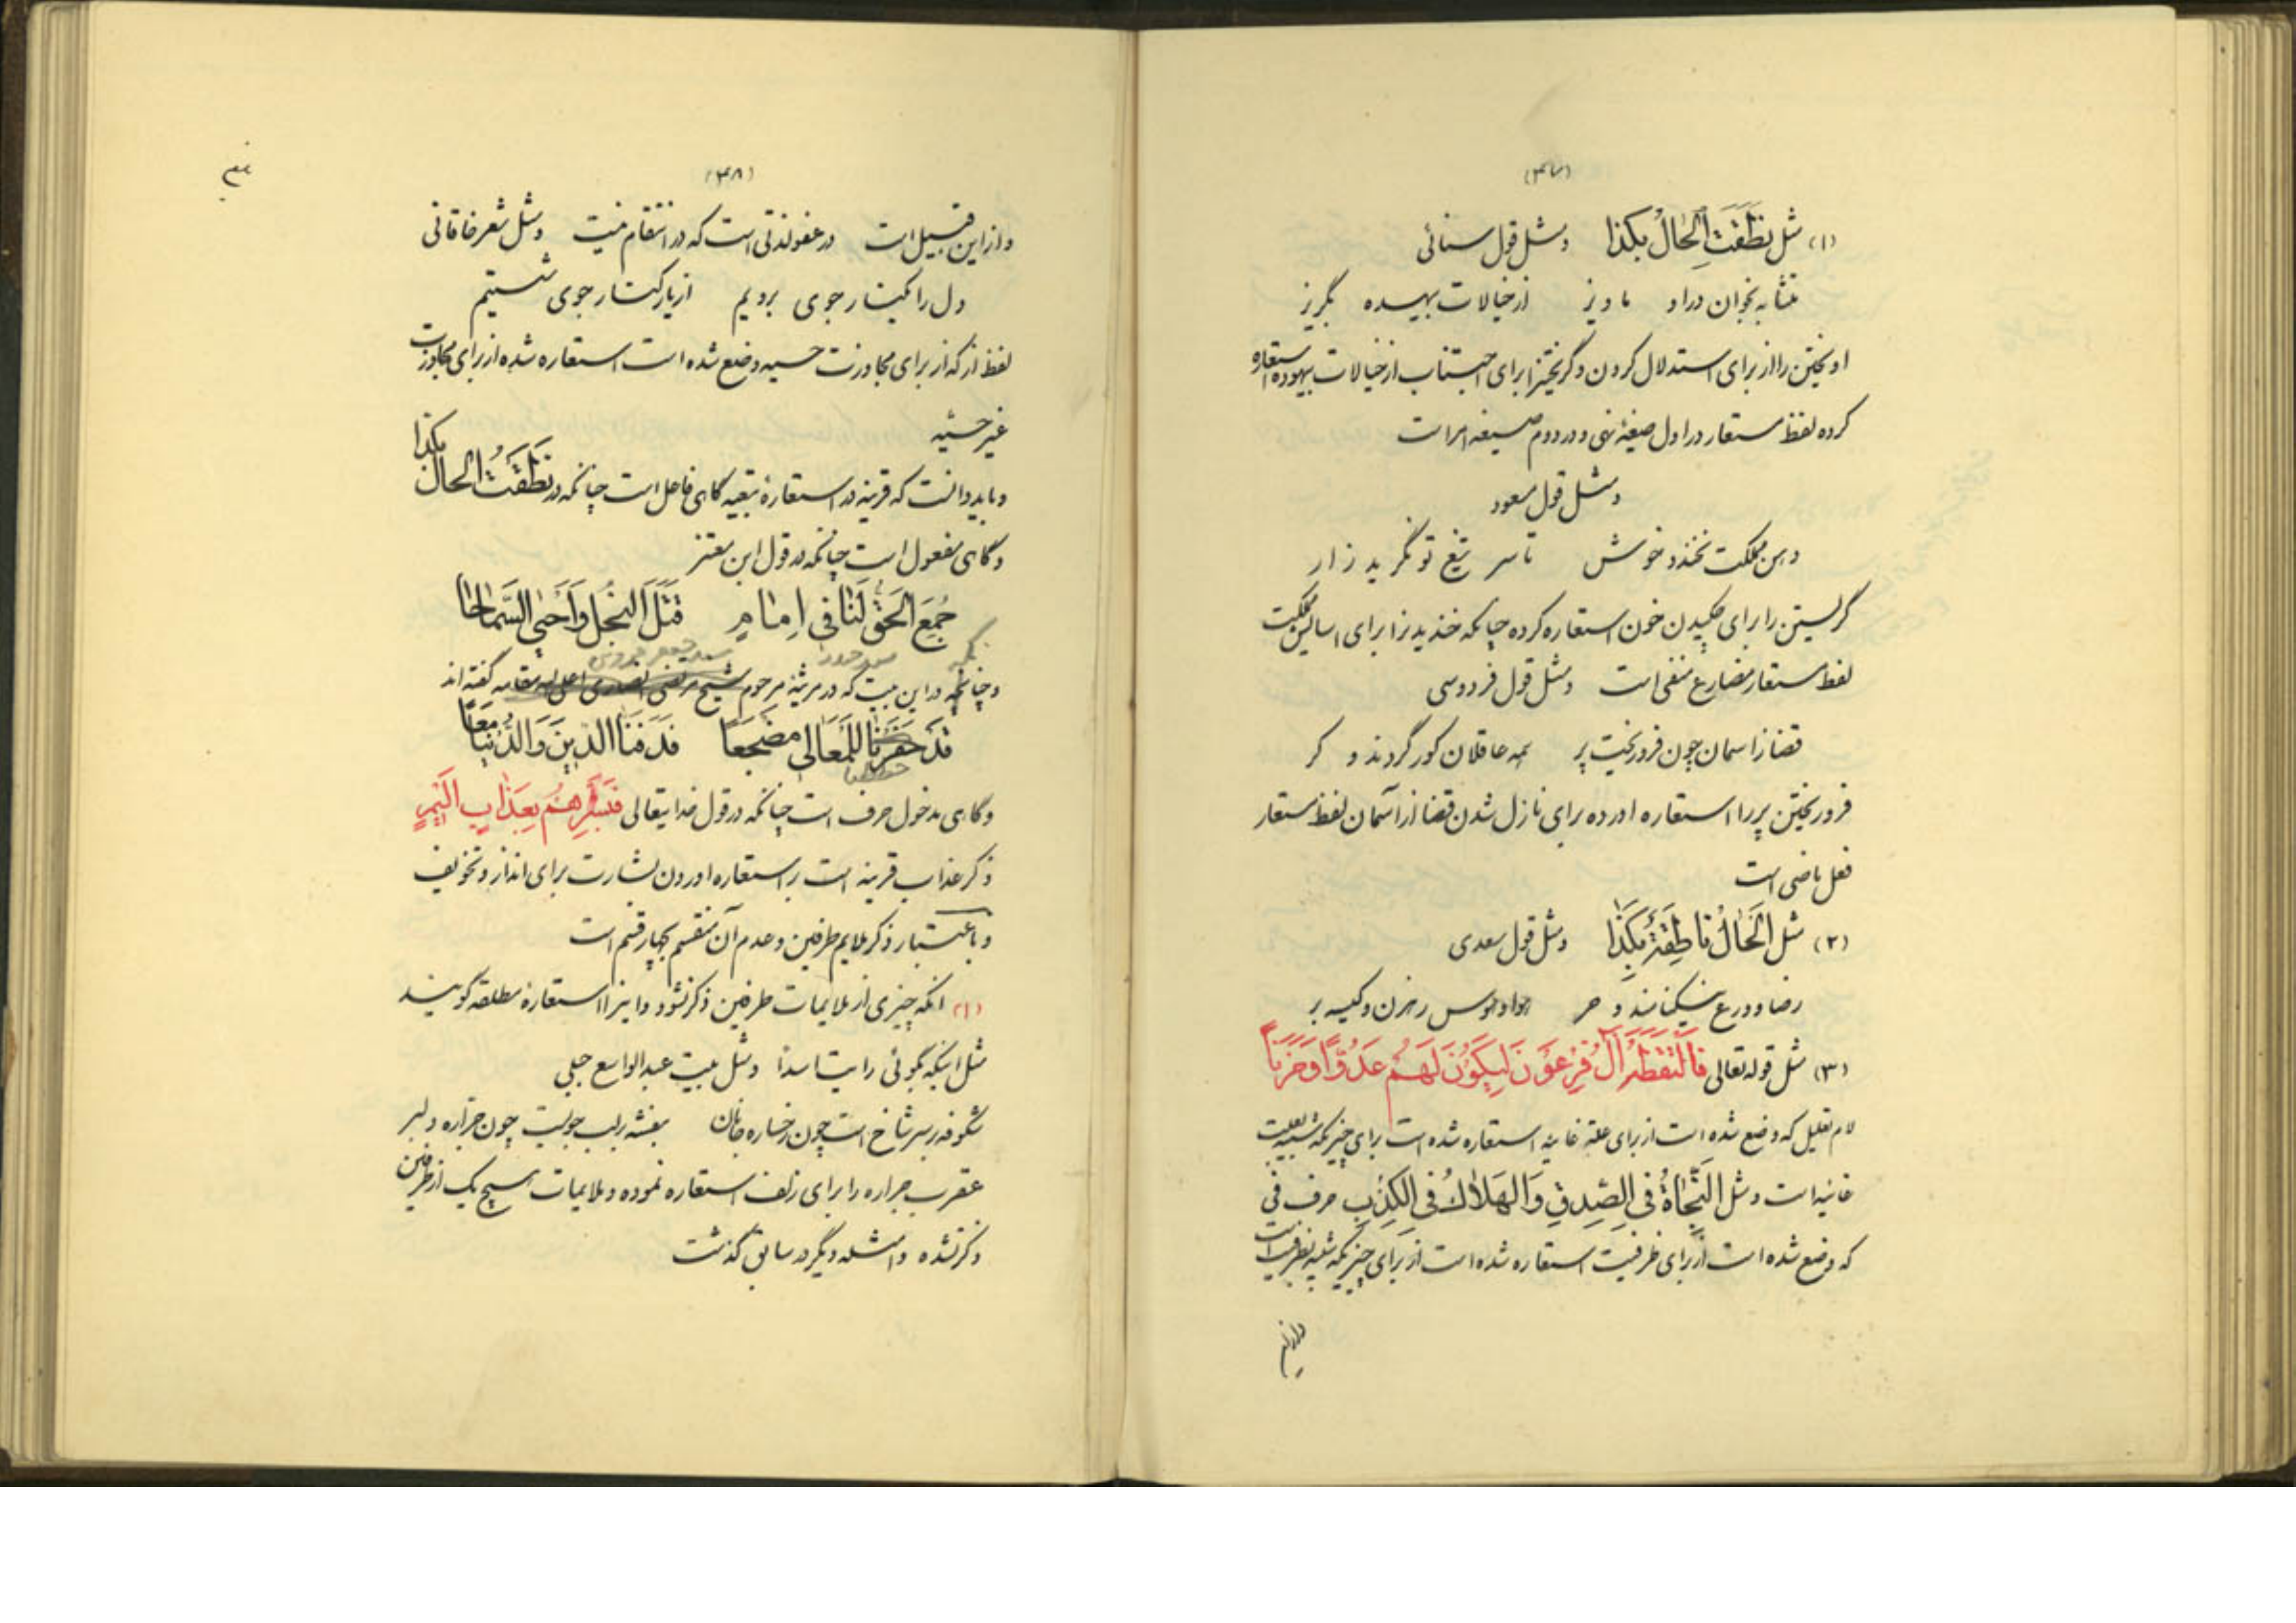 (۴۷)
(۱) مثل نَطَقَتِ اَلْحالُ بِکَذا و مثل قول سنائی
متشابه بخوان در او ماویز از خیالات بیهده بگریز
اویختن را از برای استدلال کردن و گریختن را برای اجتناب از خیالات بیهوده استعاره
کرده لفظ مستعار در اول صیغهٔ نهی و در دوم صیغه امر است
و مثل قول مسعود
دهن مملکت نخندد خوش تا سر تیغ تو نگرید زار
گریستن را برای چکیدن خون استعاره کرده چنانکه خندیدن را برای اسایش مملکت
لفظ مستعار مضارع منفی است و مثل قول فردوسی
قضا ز اسمان چون فرو ریخت پر همه عاقلان کور گردند و کر
فرو ریختن پر را استعاره اورده برای نازل شدن قضا از آسمان لفظ مستعار
فعل ماضی است
(۲) مثل اَلْحٰالُ ناطِقَةٌ بِکَذٰا و مثل قول سعدی
رضا و ورع نیکنامند و حر هوا و هوس رهزن و کیسه بر
(۳) مثل قوله تعالی فَالْتَقَطَهُ آلُ فِرْعَوْنَ لِیَکُوْنَ لَهُمْ عَدُوًّا وَحَزَناً
لام تعلیل که وضع شده است از برای علة غائیه استعاره شده است برای چیزیکه شبیه بعلت
غائیه است و مثل اَلنَّجٰاةُ فِی الصِّدقِ وَ الهَلاٰكُ فِی الکِذْبِ حرف فی
که وضع شده است از برای ظرفیت استعاره شده است از برای چیزیکه شبیه بظرفیت است
(۴۸)
و از این قبیل است در عفو لذتی است که در انتقام نیست و مثل شعر خاقانی
دل را بکنار جوی بردیم از یار کنار جوی شستیم
لفظ از که از برای مجاوزت حسیه وضع شده است استعاره شده از برای مجاوزت
غیر حسّیه
و باید دانست که قرینه در استعارهٔ تبعیه گاهی فاعل است چنانکه در نَطَقَتُ الحالُ بکذا
و گاهی مفعول است چنانکه در قول ابن معتز
جُمِعَ الحَقُّ لَنٰا فی اِمٰامٍ قَتَلَ البُخْلَ وَ اَحْیَی السَّمٰاحٰا
و چنانچه در این بیت که در مرثیهٔ مرحوم شیخ مرتضی انصاری اعلی الله مقامه گفته اند
قَدْ حَفَرْنٰا لِلْمَعٰالی مَضْجَعًا قَدْ دَفَنَّا الدّینَ وَ الدُّنْیٰا مَعًا
و گاهی مدخول حرف است چنانکه در قول خدایتعالی فَبَشِّرْهُم بِعَذٰابٍ اَلیٖمٍ
ذکر عذاب قرینه است بر استعاره اوردن بشارت برای انذار و تخویف
و باعتبار ذکر ملایم طرفین و عدم آن منقسم بچهار قسم است
(۱) انکه چیزی از ملایمات طرفین ذکر نشود و اینرا استعارهٔ مطلقه گویند
مثل اینکه بگوئی رایت اسدًا و مثل بیت عبدالواسع جبلی
شکوفه بر سر شاخ است چون رخساره جانان بنفشه بر لب جویست چون جراره دلبر
عقرب جراره را برای زلف استعاره نموده و ملایمات هیچ یک از طرفین
ذکر نشده و امثله دیگر در سابق گذشت